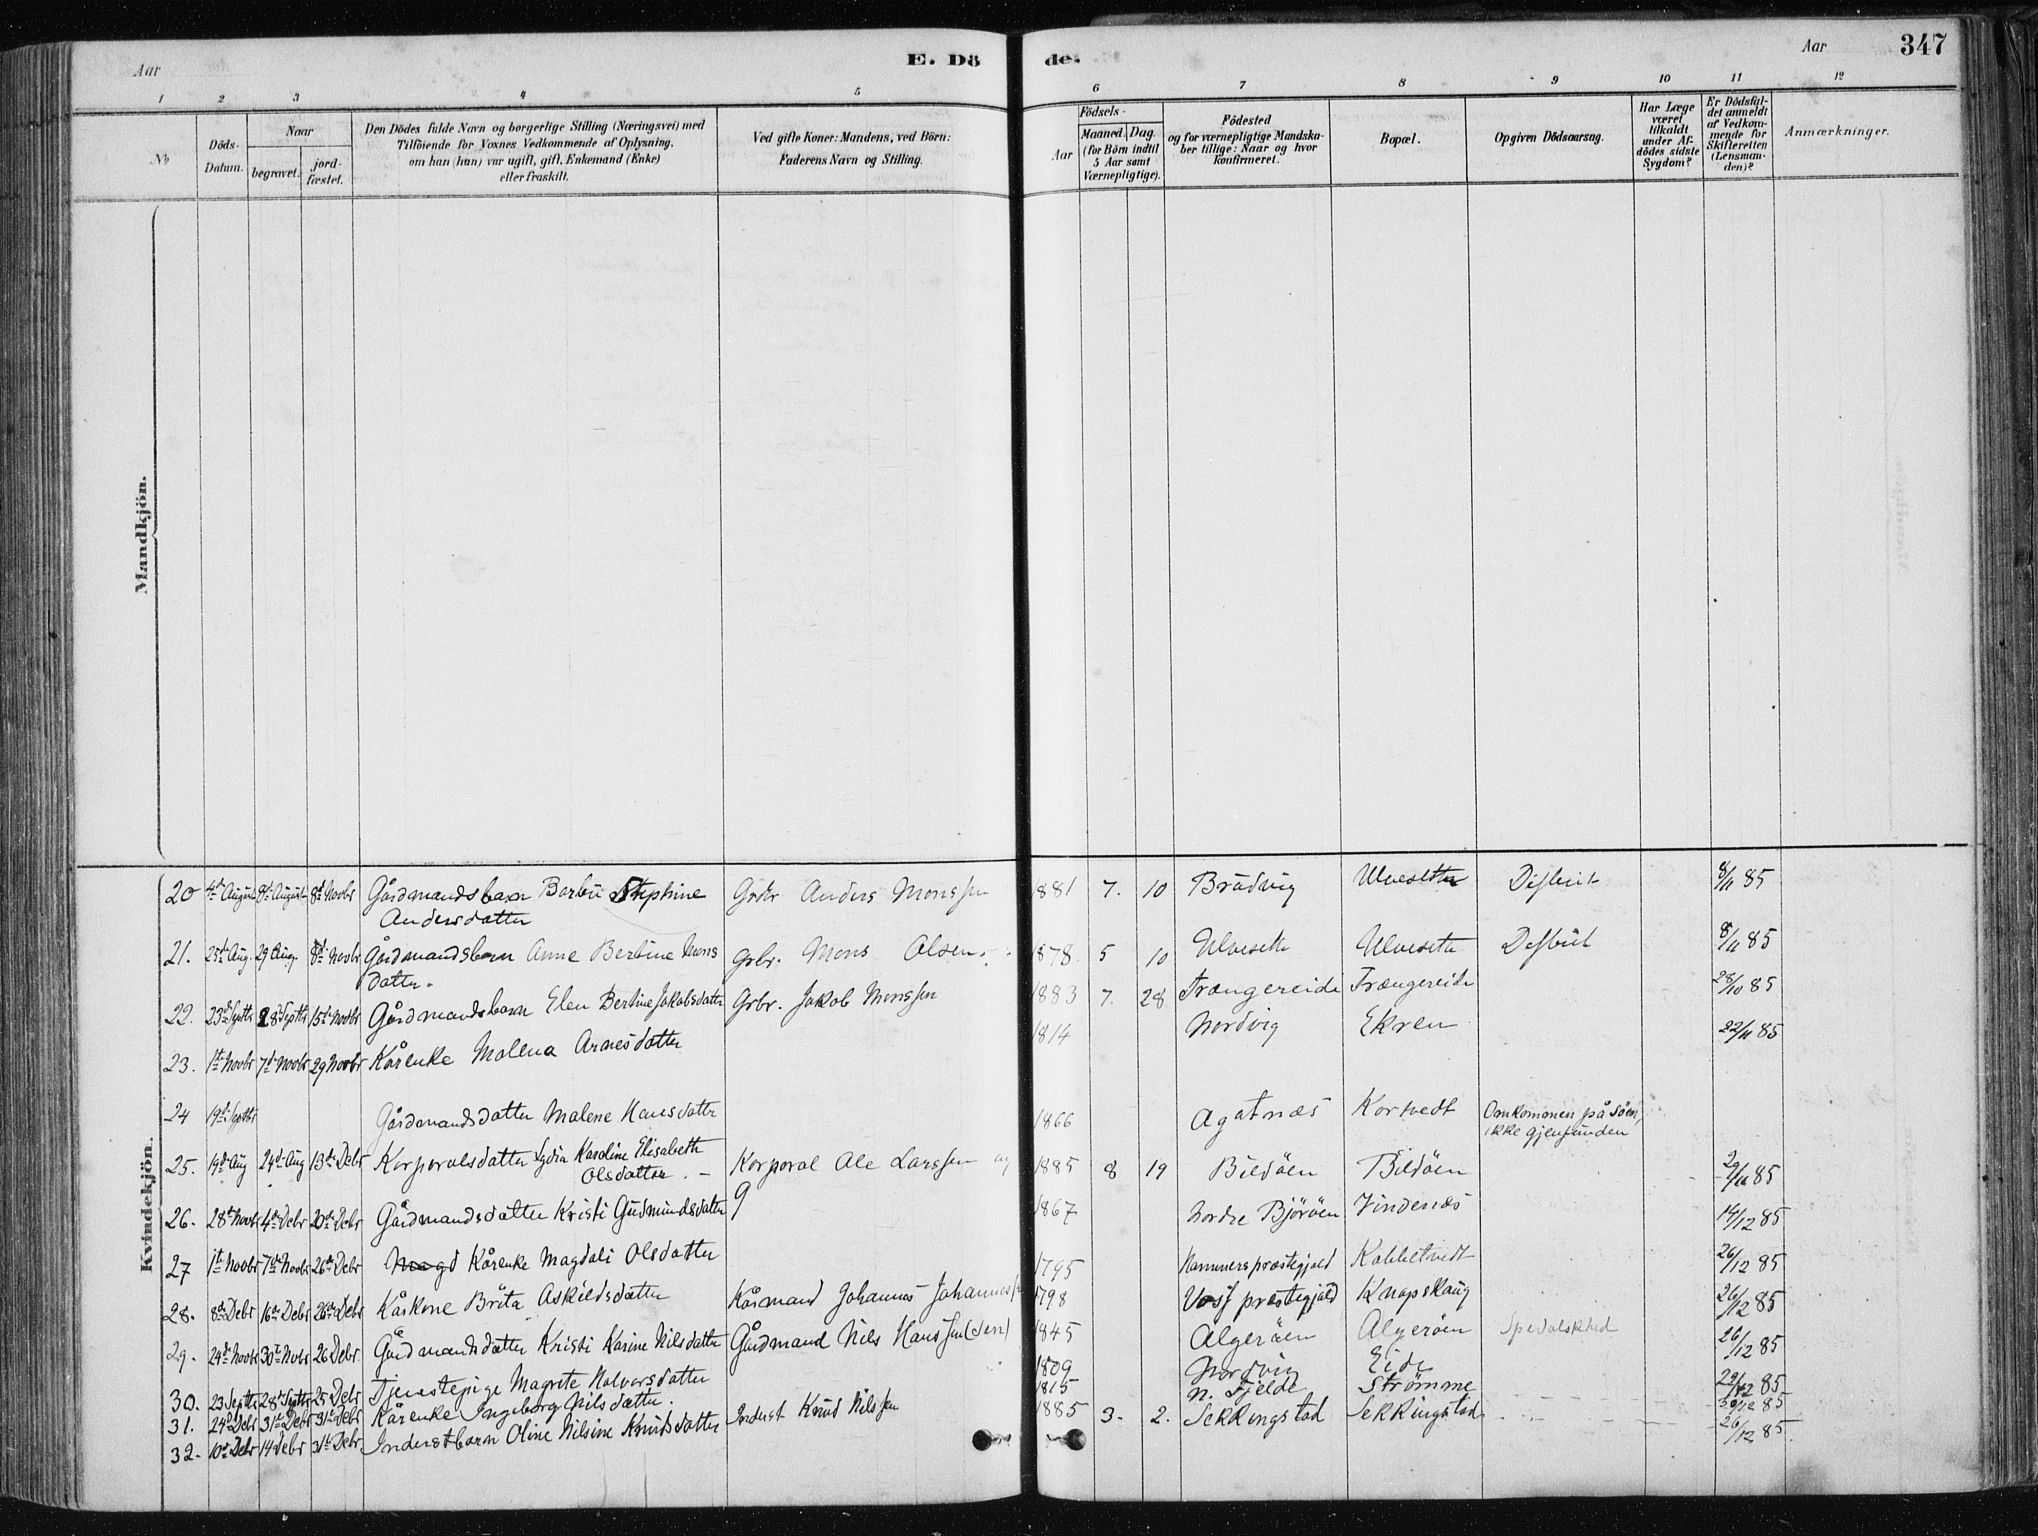 Aar
E. Dö
de.
Aar
347
1 2 3 4 5 6 7 8 9 10 11 12
No
Döds-
Datum.
Naar
begravet.
jord-
fæstet.
Den Dödes fulde Navn og borgerlige Stilling (Næringsvei) med
Tilföiende for Voxnes Vedkommende af Oplysning,
om han (hun) var ugift, gift, Enkemand (Enke)
eller fraskilt.
Ved gifte Koner: Mandens, ved Börn:
Faderens Navn og Stilling.
Födsels-
Aar
Maaned. Dag.
(for Börn indtil
5 Aar samt
Værnepligtige).
Födested
og for værnepligtige Mandska-
ber tillige: Naar og hvor
konfirmeret.
Bopæl.
Opgiven Dödsaarsag.
Har Læge
været
tilkaldt
under Af-
dödes sidste
Sygdom?
Er Dödsfal-
det anmeldt
af Vedkom-
mende for
Skifteretten
(Lensman-
den)?
Anmærkninger.
Mandkjön.
Kvindekjön.
20 4de August 9de August 8de Novbr Gårdmandsbarn Barbu Stephine Grbr Anders Monssen 1881 7. 10 Bradvig Ulveseth 8/11 85
Andersdatter
21. 25de Aug. 29 Aug. 8de Novbr Gårdmandsbarn Anne Bertine Mons Grbr. Mons Olsen 1878 5 10 Ulveseth Ulveseth 8/11 85
datter.
22. 23de Septbr 28de Septbr 15de Novbr Gårdmandsbarn Elen Bertine Jakobsdatter Grbr. Jakob Monssen 1883 7. 28 Trængereide Trængereide 28/10 85
23. 1ste Novbr 7de Novbr 29 Novbr Kårenke Malena Arnesdatter 1814 Nordvig Ekren 22/11 85
24 19de Septbr Gårdmandsdatter Malene Hansdatter 1866 Agatnæs Kortvedt Omkommen på Söen,
ikke gjenfunden
25. 19de Aug 24de Aug 13de Debr Korporalsdatter Lydia Karoline Elisabeth Korporal Ole Larssen 1885 8 19 Bildöen Bildöen 2/11 85
Olsdatter. -
26. 28de Novbr 4de Debr 20de Debr Gårdmandsdatter Kristi Gudmundsdatter 1867 Nordre Björöen Vindenæs 14/12 85
27 1ste Novbr 7de Novbr 26de Debr Kårenke Magdali Olsdatter 1795 Hammers præstegjæld Kobbeltvedt 26/12 85
28. 8de Debr 16de Debr 26de Debr Kårkone Brita Askildsdatter Kårmand Johannes Johannessen 1798 Voss præstegjæld Knapskaug 26/12 85
29. 24de Novbr 30te Novbr 26 Debr. Gårdmandsdatter Kristi Karine Nilsdatter Gårdmand Nils Hanssen (sen) 1845 Algeröen Algeröen Spedalskhed 26/12 85
30. 23 Septbr 28de Septbr 25 Debr Tjenestepige Magrete Halvorsdatter 1809 Nordvig Eide 29/12 85
31. 24de Debr 31te Debr 31te Debr Kårenke Ingeborg Nilsdatter. 1815 N. Fjelde Strömme 30/12 85
32. 10de Debr 14 Debr 31te Debr Inderstbarn Oline Nilsine Knudsdatter Inderst Knud Nilssen 1885 3. 2. Sekkingstad Sekkingstad 26/12 85